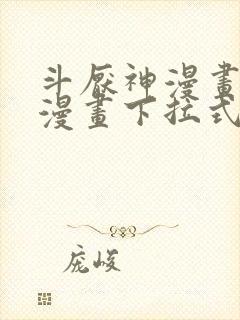 斗厭神漫畫
漫畫下拉式
庞峻